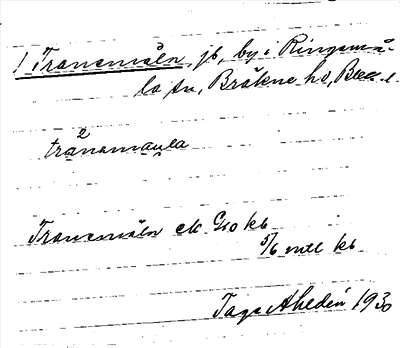 ! Tranemåla, jb, by i Ringamå-
la sn, Bräkne hd, Blek. l.
tránamaula
Tranemåla ek Geo kb
5/6 mtl kb
Tage Ahldén 1930